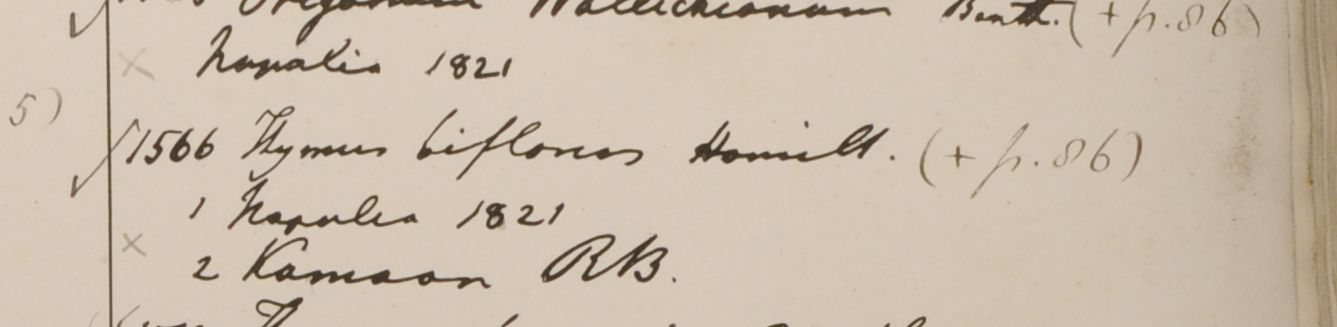 Origanum Wallichianum Benth. (+ p. 86)
× Napalia 1821
5)
√1566 Thymus biflorus Hamilt. (+ p. 86)
1 Napalia 1821
× 2 Kamaon RB.